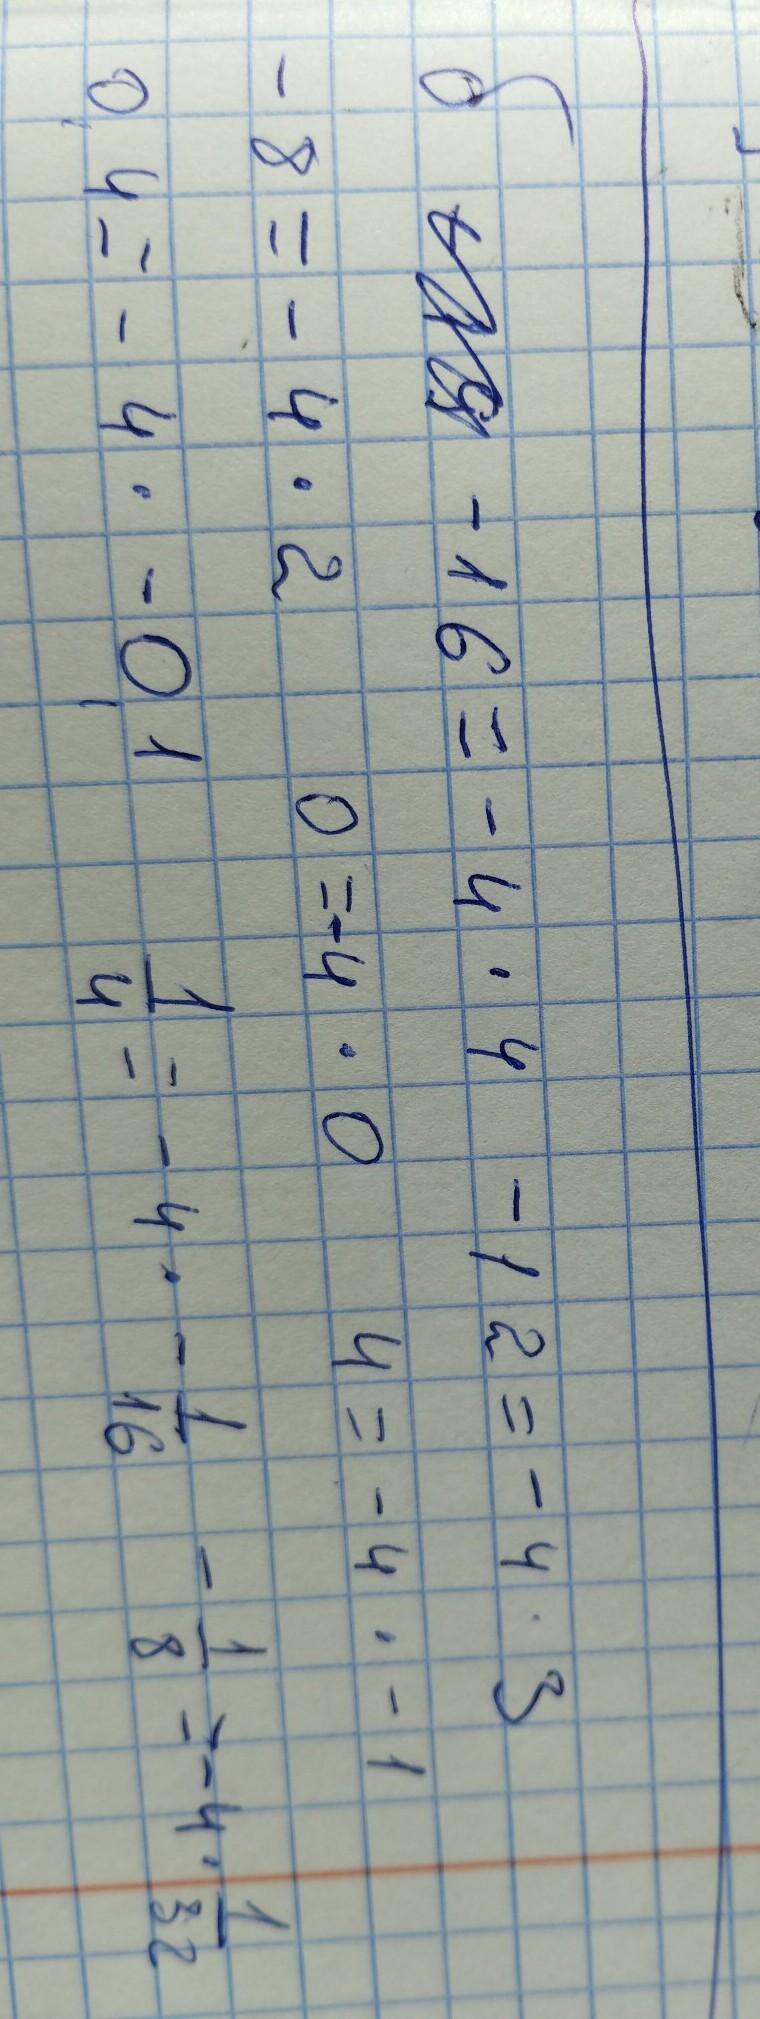 б -16 = -4 · 4 -12 = -4 · 3
-8 = -4 · 2 0 = -4 · 0 4 = -4 · -1
0,4 = -4 · -0,1 1/4 = -4 · -1/16 -1/8 = -4 · 1/32